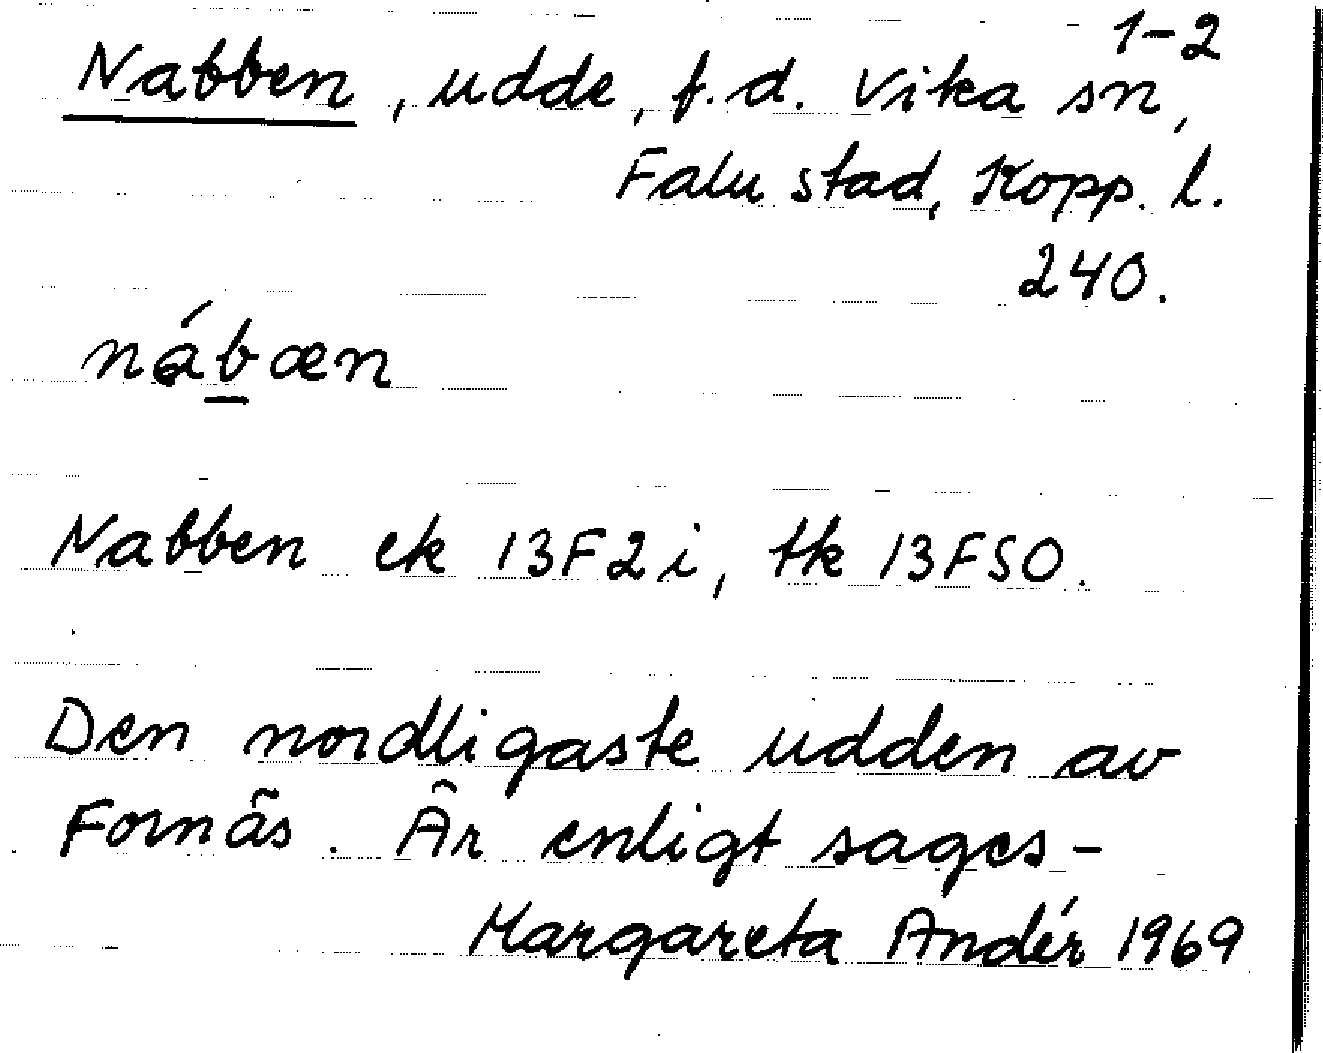 1-2
Nabben, udde, f.d. Vika sn,
Falu stad, Kopp. l.
240.
nábæn
Nabben ek 13F2i, tk 13FSO.
Den nordligaste udden av
Fornäs. Är enligt sages-
Margareta Andér 1969